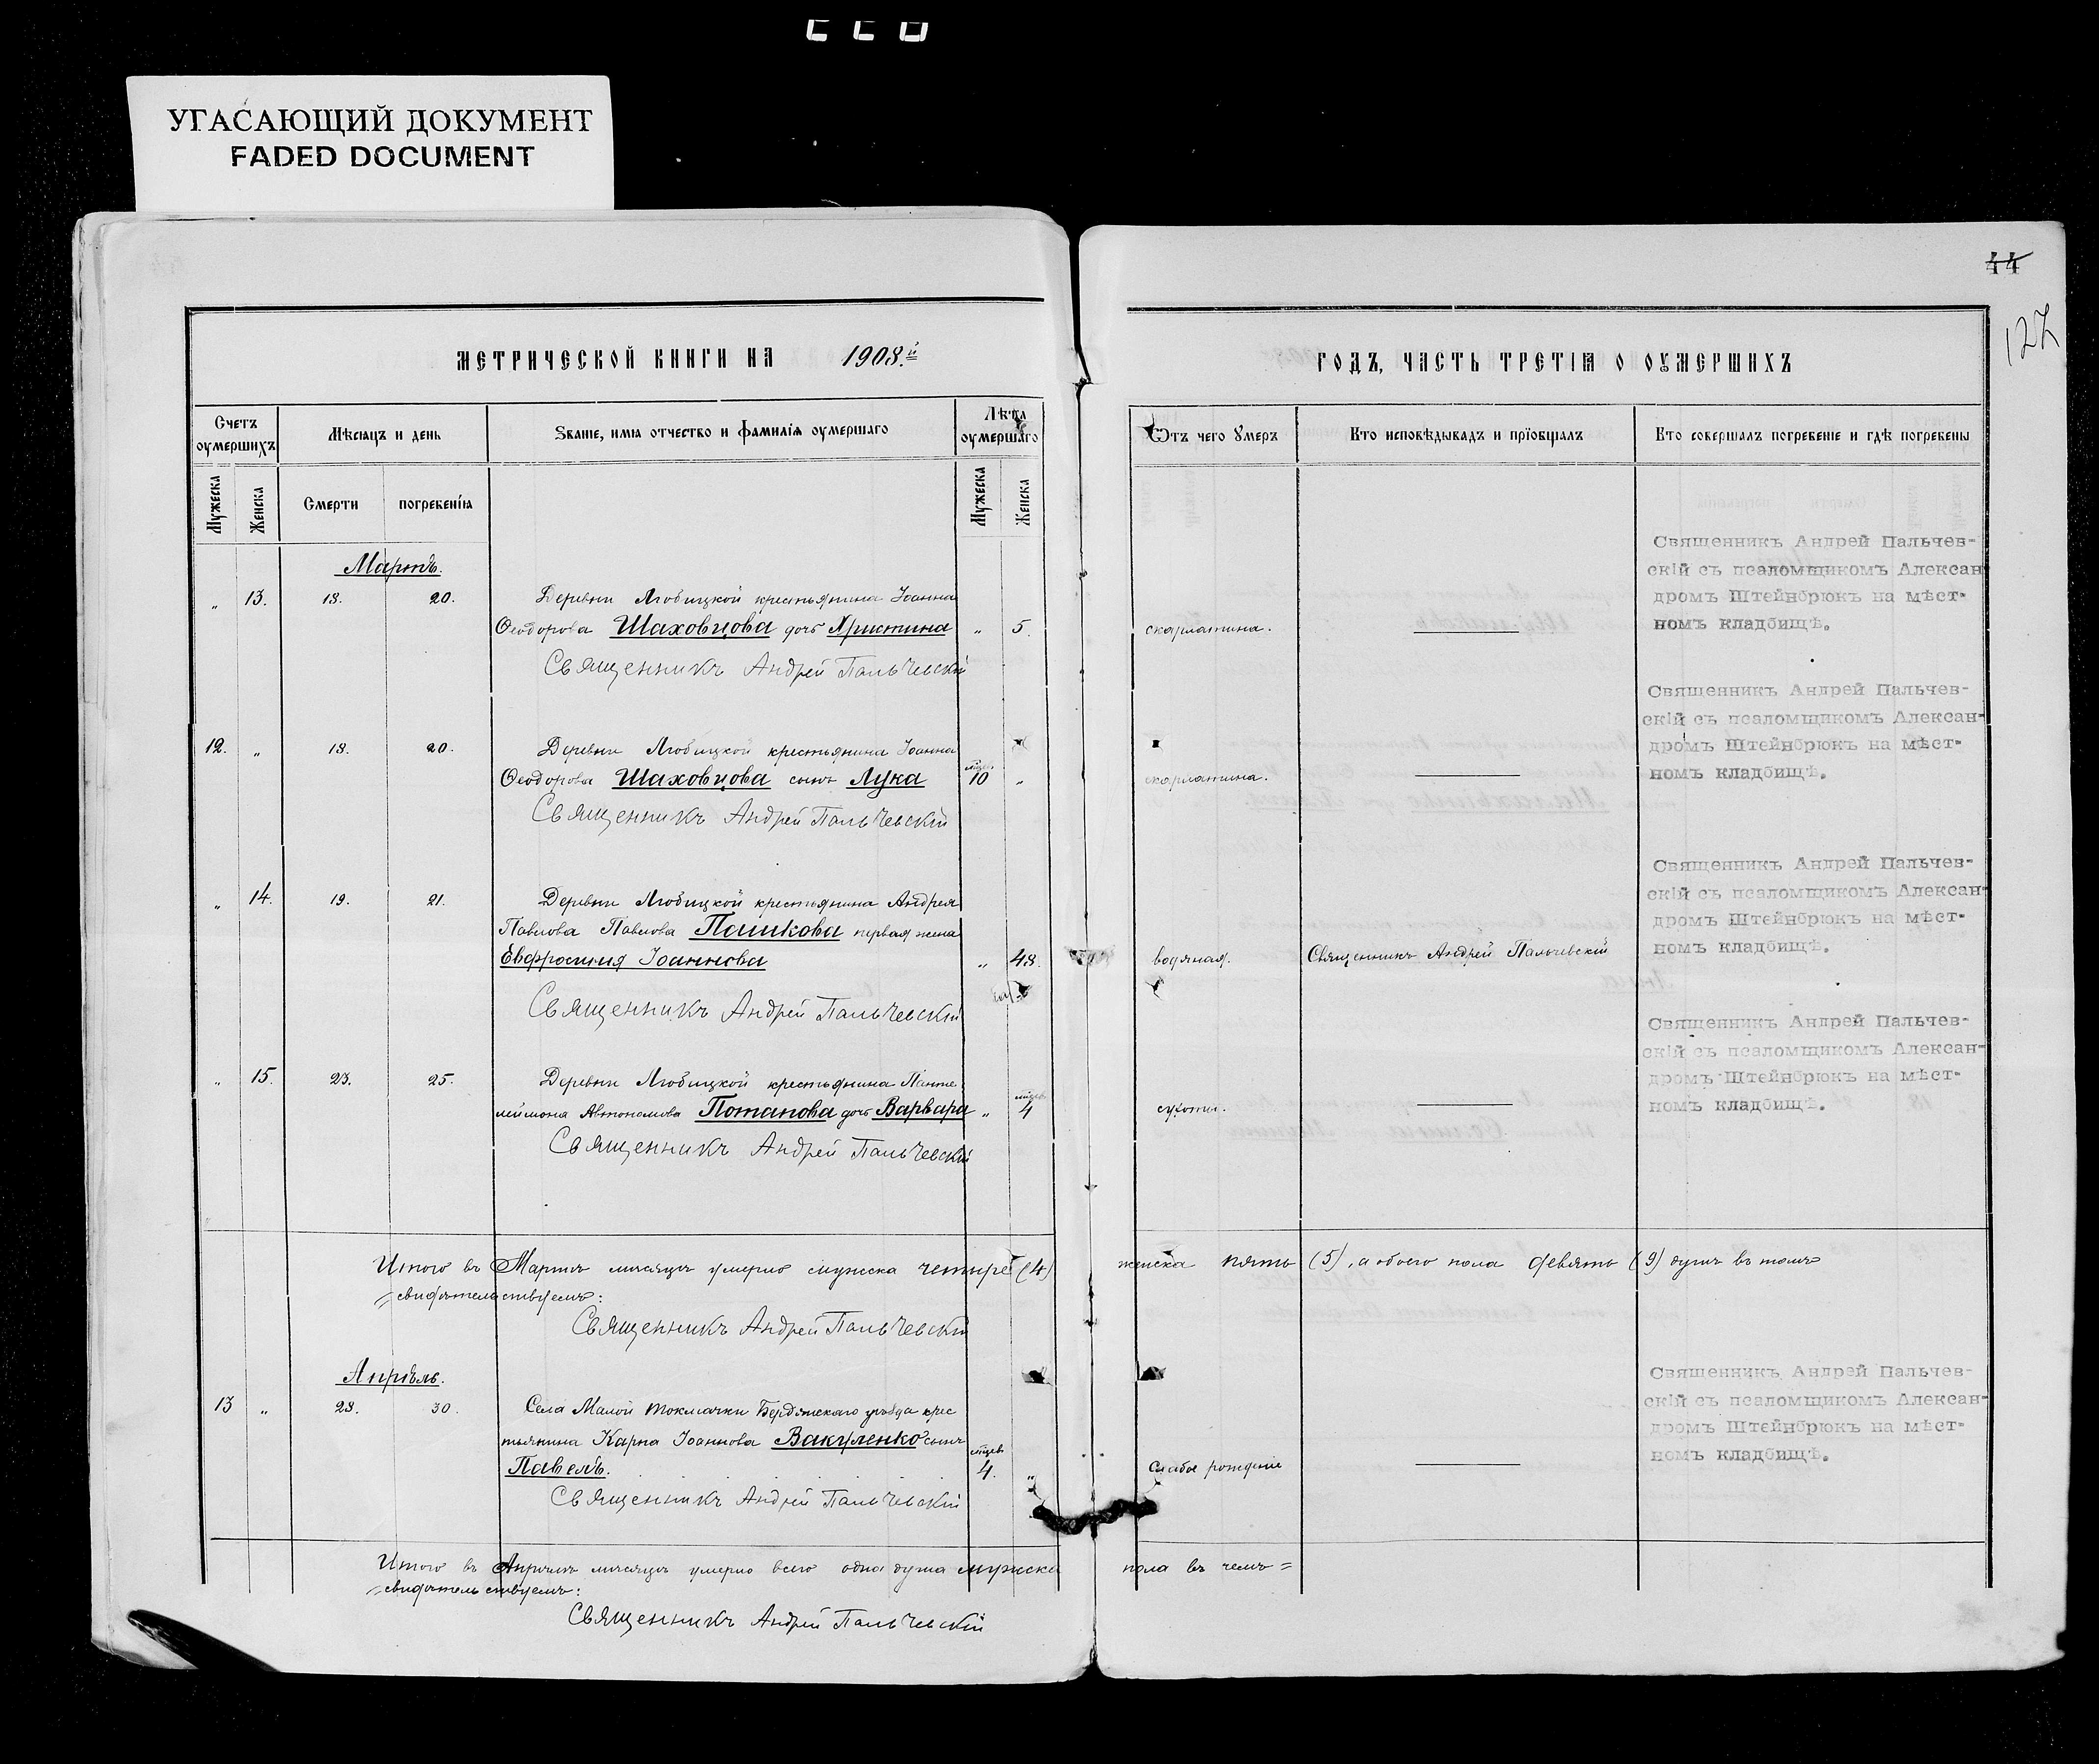 УГАСАЮЩИЙ ДОКУМЕНТ
FADED DOCUMENT
44
127
МЕТРИЧЕСКОЙ КНИГИ НА 1908.й
ГОДЪ, ЧАСТЬ ТРЕТІѦ О ОУМЕРШИХЪ
Счетъ оумершихъ
Мѣсяцъ и день
Званіе, имя отчество и фамилія оумершаго
Лѣта оумершаго
Ѿтъ чего Умеръ
Кто исповѣдывалъ и прїобщалъ
Кто совершалъ погребеніе и гдѣ погребены
Мужеска
Женска
Смерти
погребенія
Мужеска
Женска
Мартъ.
„ 13. 18. 20. Деревни Любицкой крестьянина Іоанна
Ѳеодорова Шаховцова дочь Христина „ 5. скарлатина.
Священникъ Андрей Пальчевскій
Священникъ Андрей Пальчев-
скій съ псаломщикомъ Алексан-
дромъ Штейнбрюкъ на мѣст-
номъ кладбищѣ.
12. „ 18. 20. Деревни Любицкой крестьянина Іоанна
Ѳеодорова Шаховцова сынъ Лука мѣсяц. 10 „ скарлатина.
Священникъ Андрей Пальчевскій
Священникъ Андрей Пальчев-
скій съ псаломщикомъ Алексан-
дромъ Штейнбрюкъ на мѣст-
номъ кладбищѣ.
„ 14. 19. 21. Деревни Любицкой крестьянина Андрея
Павлова Павлова Пашкова первая жена
Евфросинія Іоаннова „ 48. водяная. Священникъ Андрей Пальчевскій
Священникъ Андрей Пальчевскій
Священникъ Андрей Пальчев-
скій съ псаломщикомъ Алексан-
дромъ Штейнбрюкъ на мѣст-
номъ кладбищѣ.
„ 15. 23. 25. Деревни Любицкой крестьянина Панте
леимона Автономова Потапова дочь Варвара „ 4 сухоты.
Священникъ Андрей Пальчевскій
Священникъ Андрей Пальчев-
скій съ псаломщикомъ Алексан-
дромъ Штейнбрюкъ на мѣст-
номъ кладбищѣ.
Итого въ Мартѣ мѣсяцѣ умерло мужска четыре (4) женска пять (5), а обоего пола девять (9) душъ въ томъ
свидѣтельствуемъ:
Священникъ Андрей Пальчевскій
Апрѣль.
13 „ 28. 30. Села Малой Токмачки Бердянскаго уѣзда крес
тьянина Карпа Іоаннова Вакуленко сынъ
Павелъ. 4. „ слабое рожденіе
Священникъ Андрей Пальчевскій
Священникъ Андрей Пальчев-
скій съ псаломщикомъ Алексан-
дромъ Штейнбрюкъ на мѣст-
номъ кладбищѣ.
Итого въ Апрѣлѣ мѣсяцѣ умерло всего одна душа мужска пола въ чемъ=
свидѣтельствуемъ:
Священникъ Андрей Пальчевскій